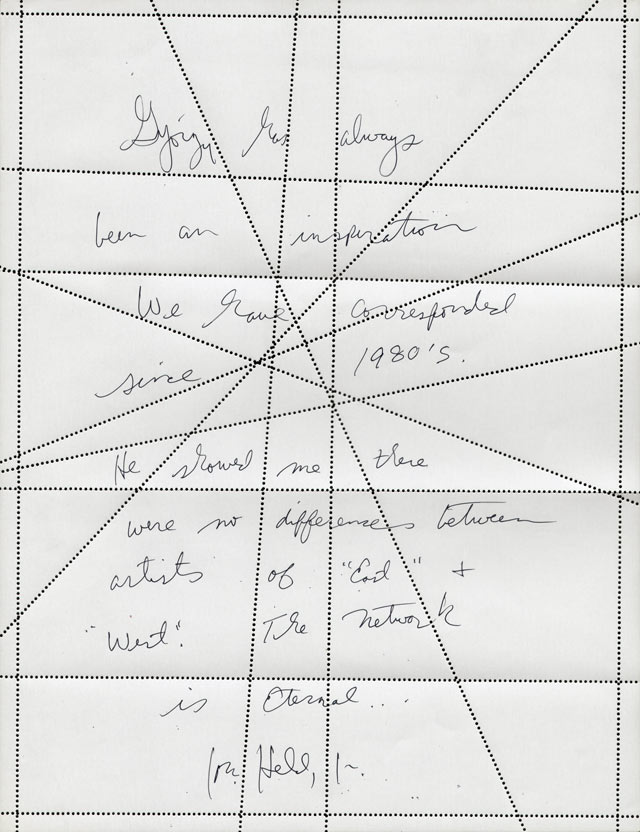 György has always
been an inspiration
We have corresponded
since 1980's.
He showed me there
were no differences between
artists of "East" +
"West". The network
is Eternal...
John Held, Jr.